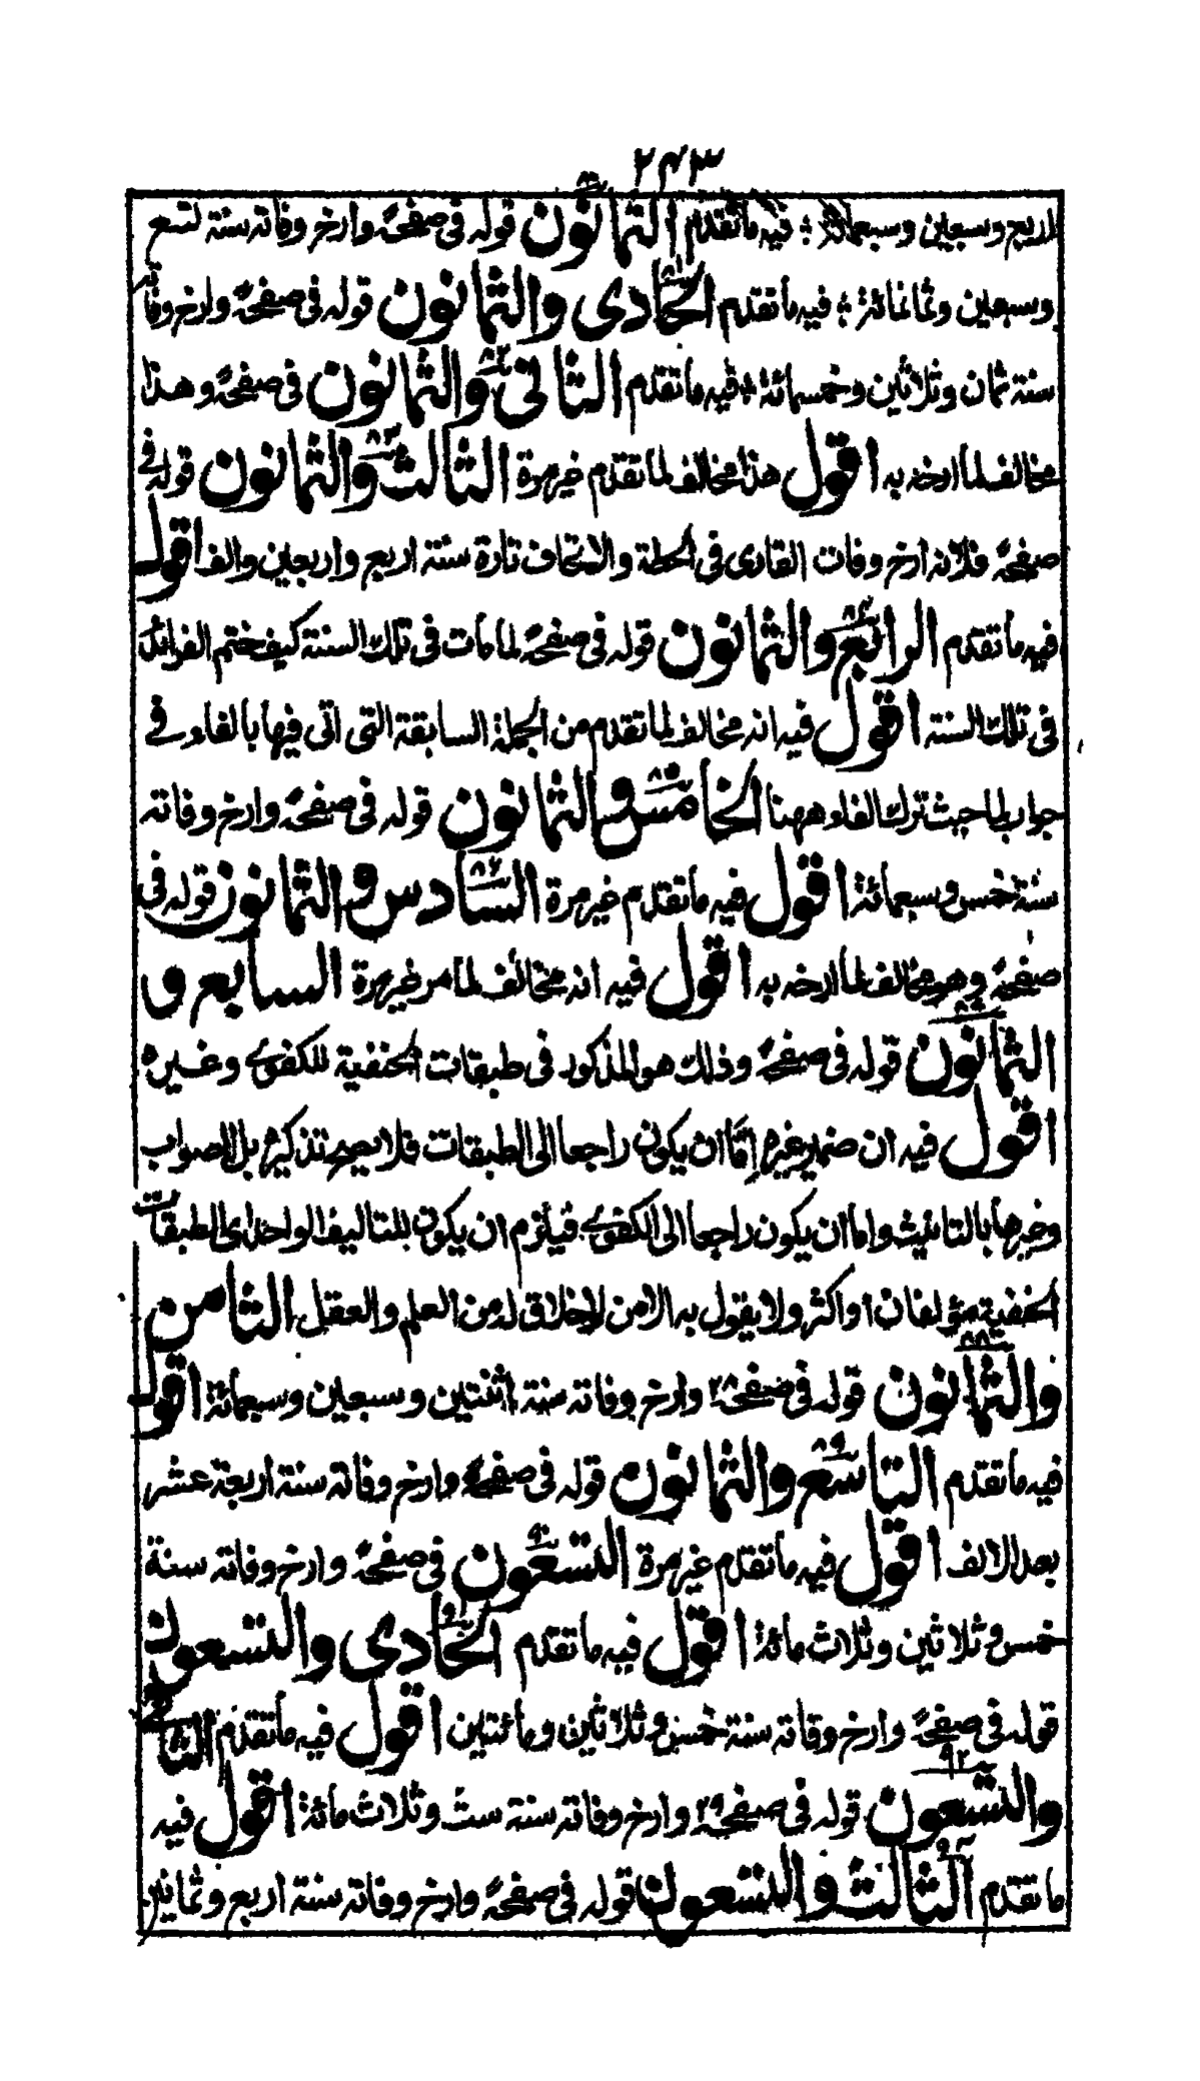 ٢٤٣
اربع وسبعين وسبعمائة ؛ فيه ما تقدم الثمانون قوله فى صفحة وارخ وفاته سنة تسع
وسبعين وثمانمائة ؛ فيه ما تقدم الحادى والثمانون قوله فى صفحة وارخ وفاته
سنة ثمان وثلاثين وخمسمائة ؛ فيه ما تقدم الثانى والثمانون فى صفحة وهذا
مخالف لما ارخه به اقول هذا مخالف لما تقدم غير مرة الثالث والثمانون قوله فى
صفحة فلانه ارخ وفات القارى فى الحطة والاتحاف تارة سنة اربع واربعين والف اقول
فيه ما تقدم الرابع والثمانون قوله فى صفحة لما مات فى تلك السنة كيف ختم الفرائد
فى تلك السنة اقول فيه انه مخالف لما تقدم من الجملة السابقة التى اتى فيها بالفاء فى
جواب لما حيث ترك الفاء ههنا الخامس والثمانون قوله فى صفحة وارخ وفاته
سنة خمس وسبعمائة اقول فيه ما تقدم غير مرة السادس والثمانون قوله فى
صفحة وهو مخالف لما ارخه به اقول فيه انه مخالف لما مر غير مرة السابع و
الثمانون قوله فى صفحة وذلك هو المذكور فى طبقات الحنفية للكفوى وغيره
اقول فيه ان ضمير غيره اما ان يكون راجعا الى الطبقات فلا يصح تذكيره بل الصواب
وغيرها بالتانيث واما ان يكون راجعا الى الكفوى فيلزم ان يكون للتاليف الواحد اى الطبقات
الحنفية مؤلفان او اكثر ولا يقول به الا من لا خلاق له من العلم والعقل الثامن
والثمانون قوله فى صفحة ٢٨ وارخ وفاته سنة اثنتين وسبعين وسبعمائة اقول
فيه ما تقدم التاسع والثمانون قوله فى صفحة وارخ وفاته سنة اربعة عشر
بعد الالف اقول فيه ما تقدم غير مرة التسعون فى صفحة وارخ وفاته سنة
خمس وثلاثين وثلاث مائة اقول فيه ما تقدم الحادى والتسعون
قوله فى صفحة وارخ وفاته سنة خمس وثلاثين ومائتين اقول فيه ما تقدم الثانى
والتسعون قوله فى صفحة ٢٩ وارخ وفاته سنة ست وثلاث مائة اقول فيه
ما تقدم الثالث والتسعون قوله فى صفحة وارخ وفاته سنة اربع وثمانين